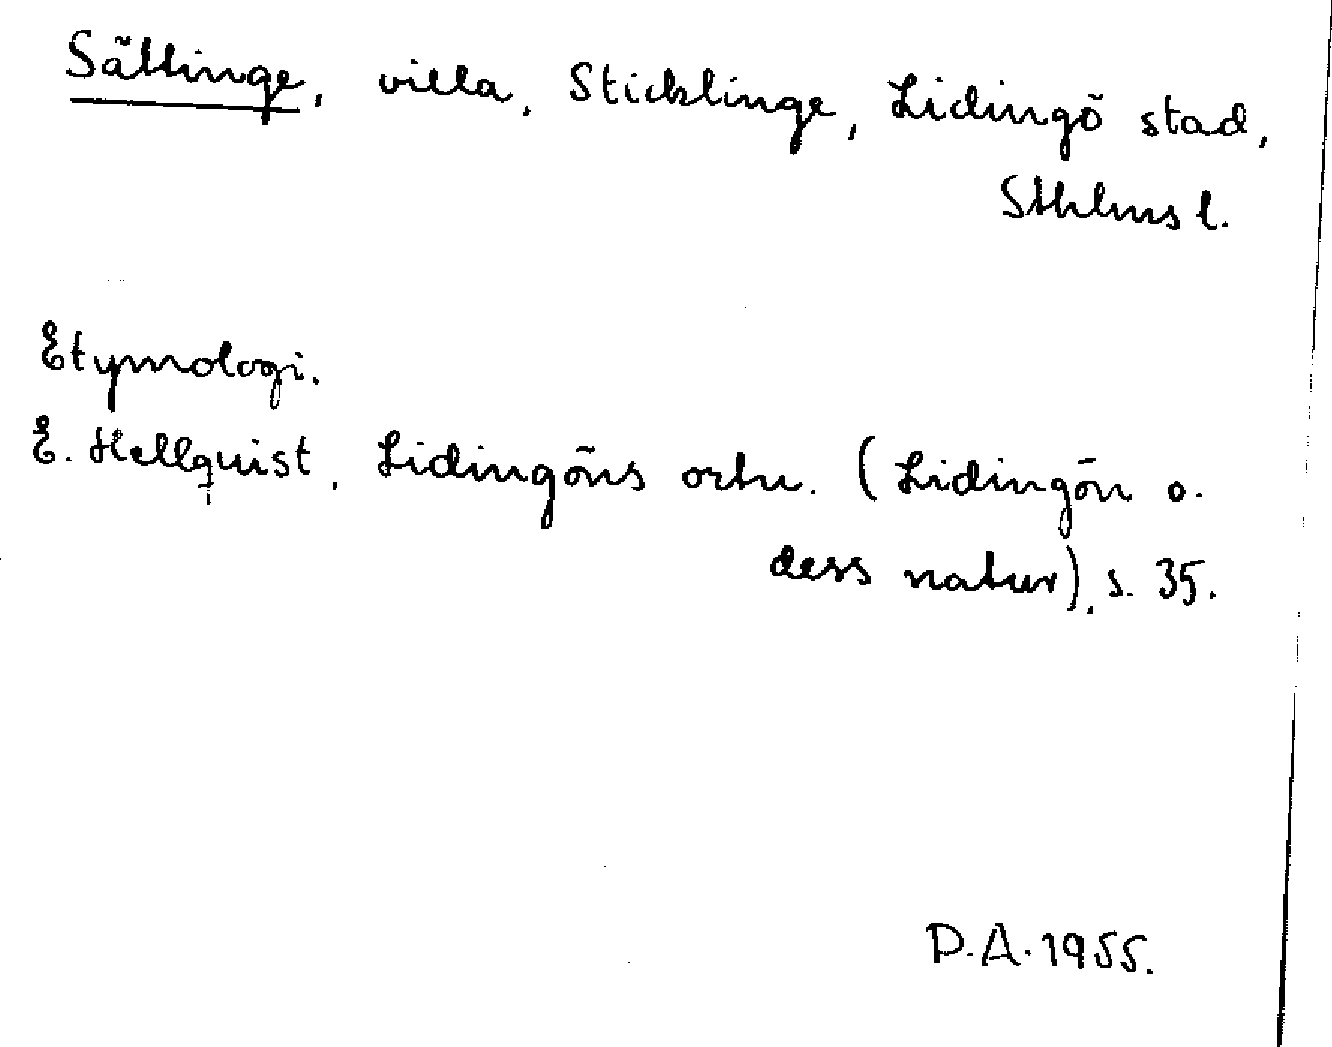 Sättinge, villa, Sticklinge, Lidingö stad,
Sthlms l.
Etymologi.
E. Hellquist, Lidingöns ortn. (Lidingön o.
dess natur), s. 35.
D.A. 1955.